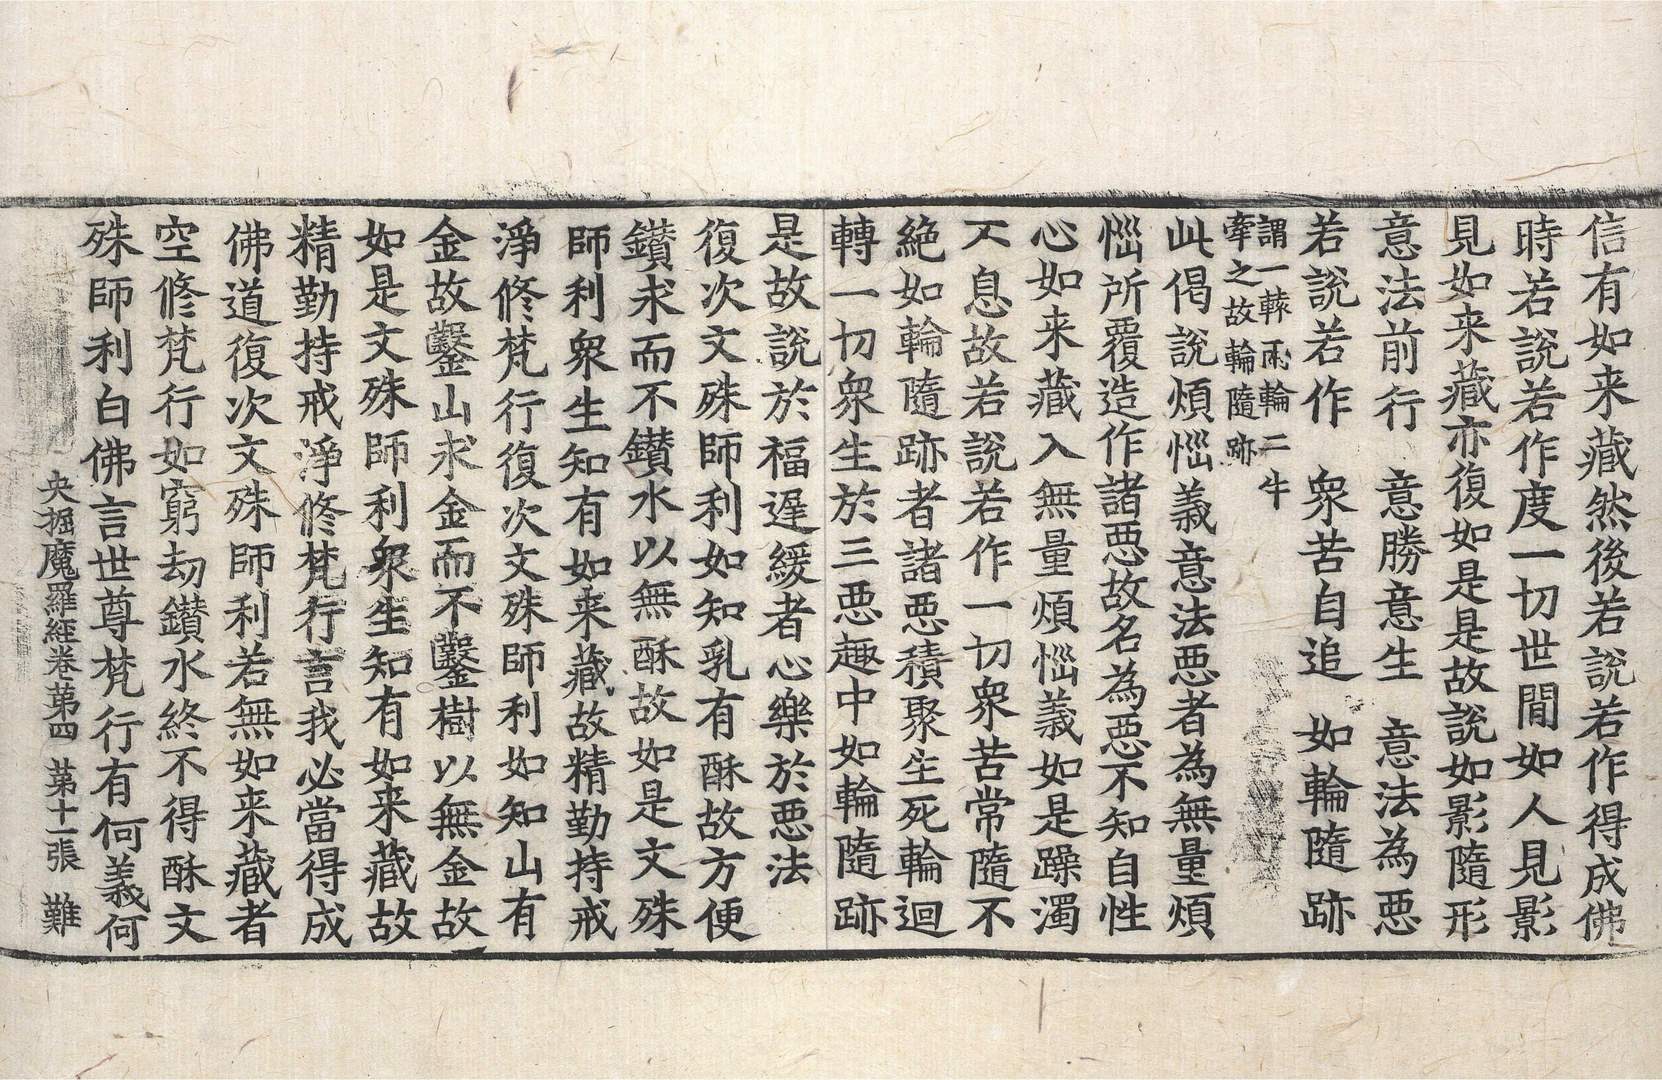 信有如来藏然後若說若作得成佛
時若說若作度一切世間如人見影
見如来藏亦復如是是故說如影隨形
意法前行　意勝意生　意法為惡
若說若作　衆苦自追　如輪隨跡
謂一轅兩輪二牛
牽之故輪隨跡
此偈說煩惱義意法惡者為無量煩
惱所覆造作諸惡故名為惡不知自性
心如来藏入無量煩惱義如是躁濁
不息故若說若作一切衆苦常隨不
絶如輪隨跡者諸惡積聚生死輪迴
轉一切衆生於三惡趣中如輪隨跡
是故說於福遲緩者心樂於惡法
復次文殊師利如知乳有酥故方便
鑚求而不鑚水以無酥故如是文殊
師利衆生知有如来藏故精勤持戒
淨修梵行復次文殊師利如知山有
金故鑿山求金而不鑿樹以無金故
如是文殊師利衆生知有如来藏故
精勤持戒淨修梵行言我必當得成
佛道復次文殊師利若無如来藏者
空修梵行如窮劫鑚水終不得酥文
殊師利白佛言世尊梵行有何義何
央掘魔羅經卷第四　第十一張　難